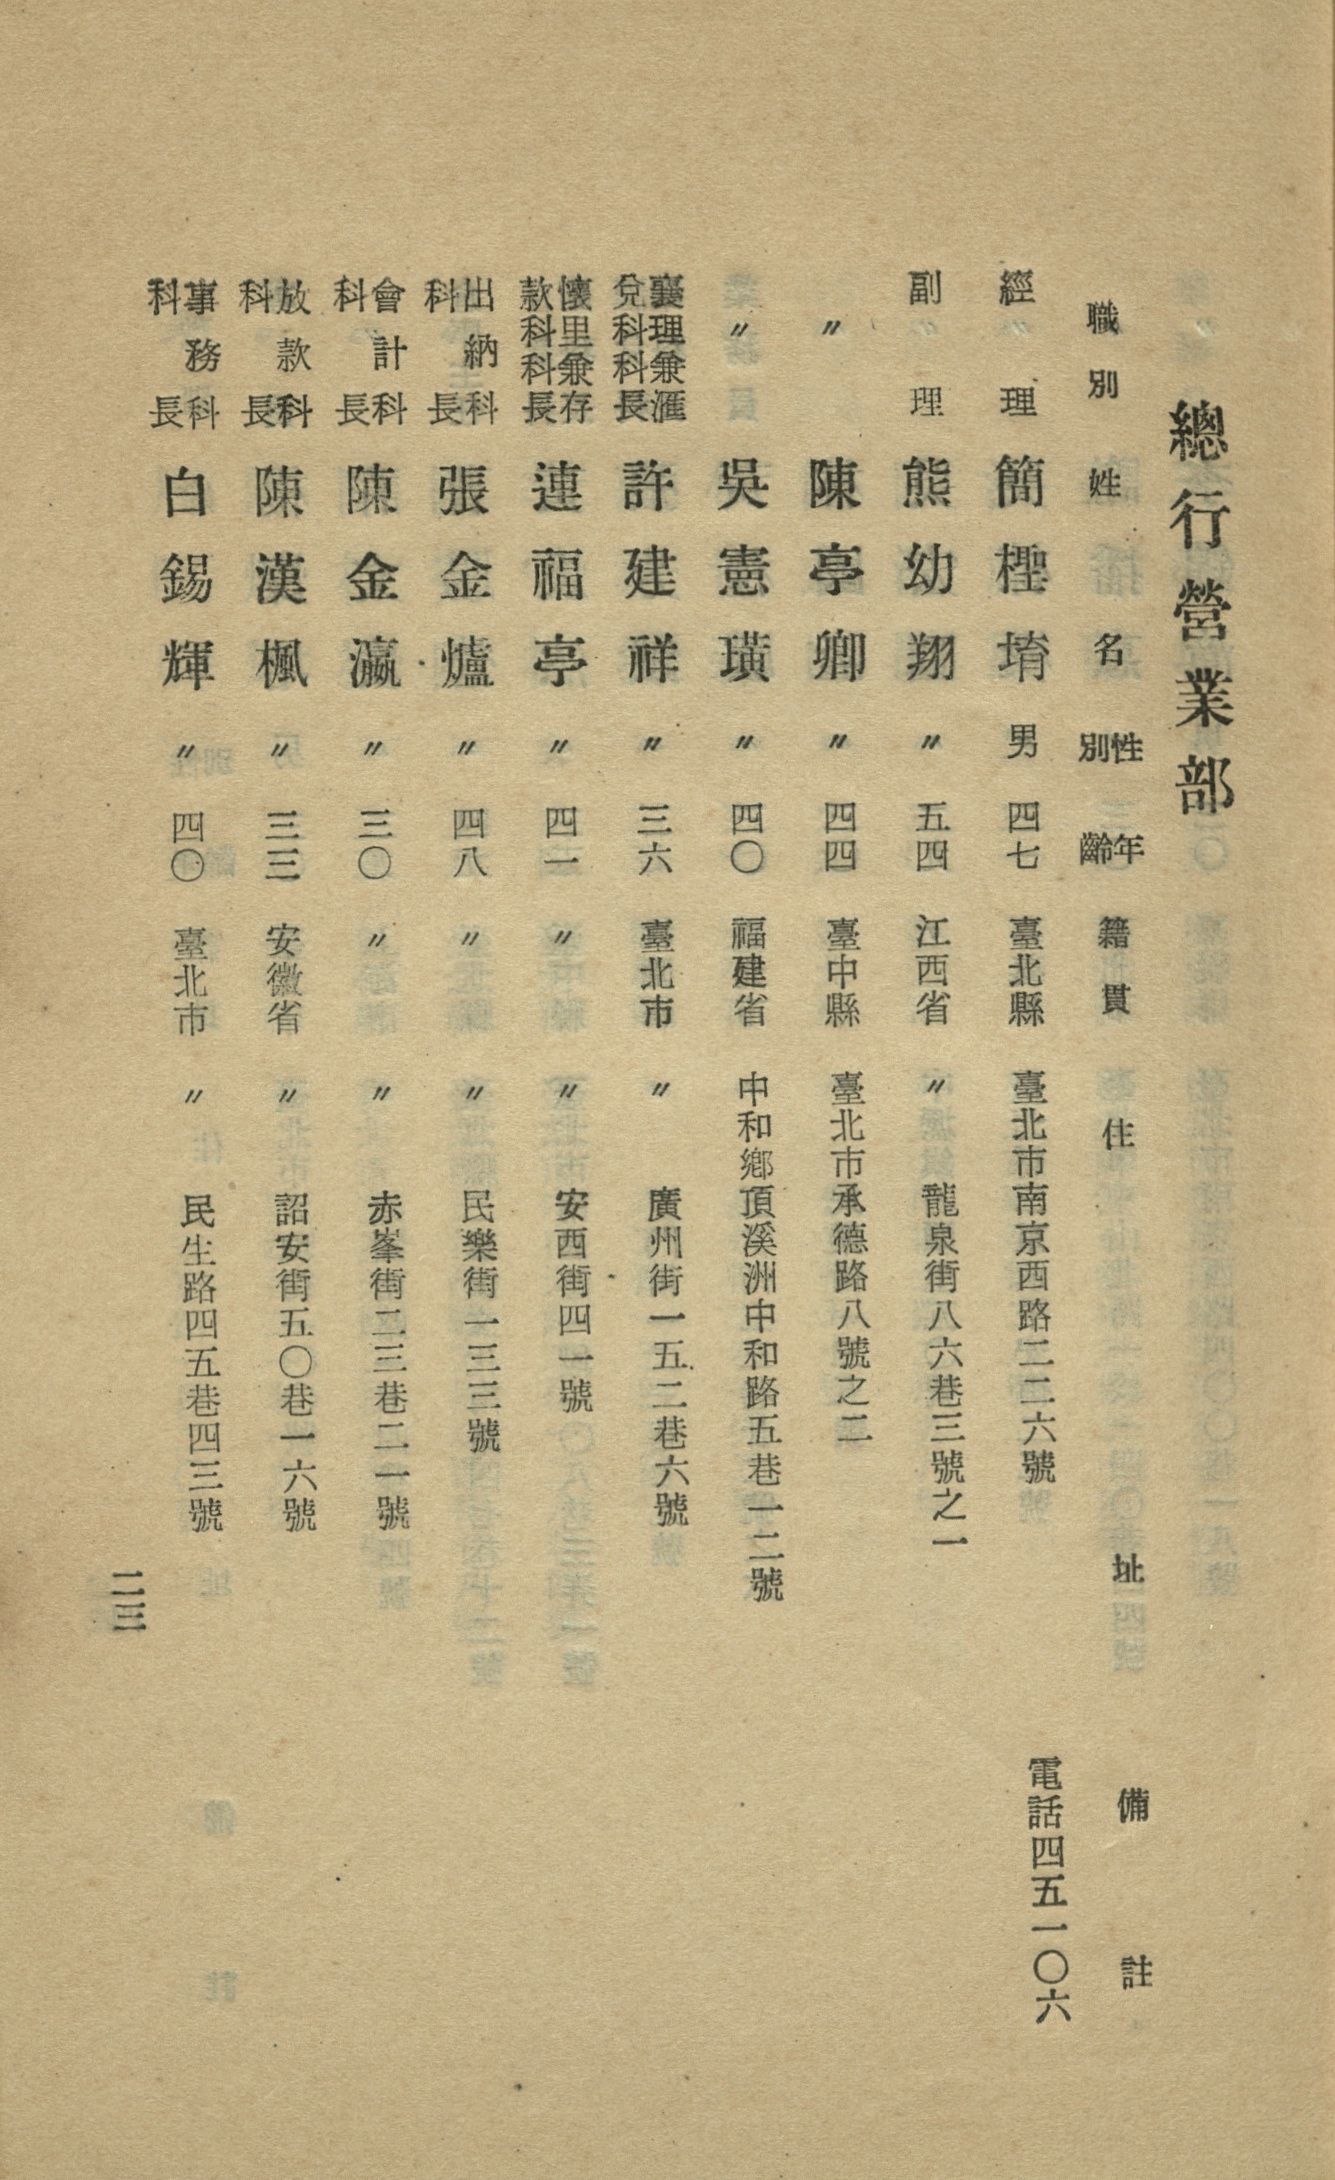 總行營業部
職別 姓名 性別 年齡 籍貫 住址 備註
經理 簡檉堉 男 四七 臺北縣 臺北市南京西路二二六號 電話四五一〇六
副理 熊幼翔 〃 五四 江西省 〃 龍泉街八六巷三號之一
〃 陳亭卿 〃 四四 臺中縣 臺北市承德路八號之二
〃 吳憲璜 〃 四〇 福建省 中和鄉頂溪洲中和路五巷一二號
襄理兼滙兌科科長 許建祥 〃 三六 臺北市 〃 廣州街一五二巷六號
懷里兼存款科科長 連福亭 〃 四一 〃 〃 安西街四一號
出納科科長 張金爐 〃 四八 〃 〃 民樂街一三三號
會計科科長 陳金瀛 〃 三〇 〃 〃 赤峯街二三巷二一號
放款科科長 陳漢楓 〃 三三 安徽省 〃 詔安街五〇巷一六號
事務科科長 白錫輝 〃 四〇 臺北市 〃 民生路四五巷四三號
二三